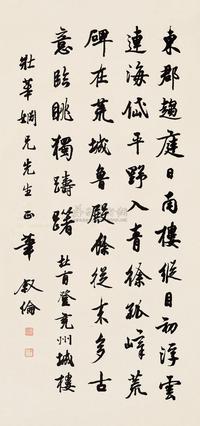 東郡趨庭日南樓縱目初浮雲
連海岱平野入青徐孤嶂
碑在荒城魯殿餘從來多古
意臨眺獨躊躇
杜甫登兗州城樓
壯華姻兄先生正
叙倫